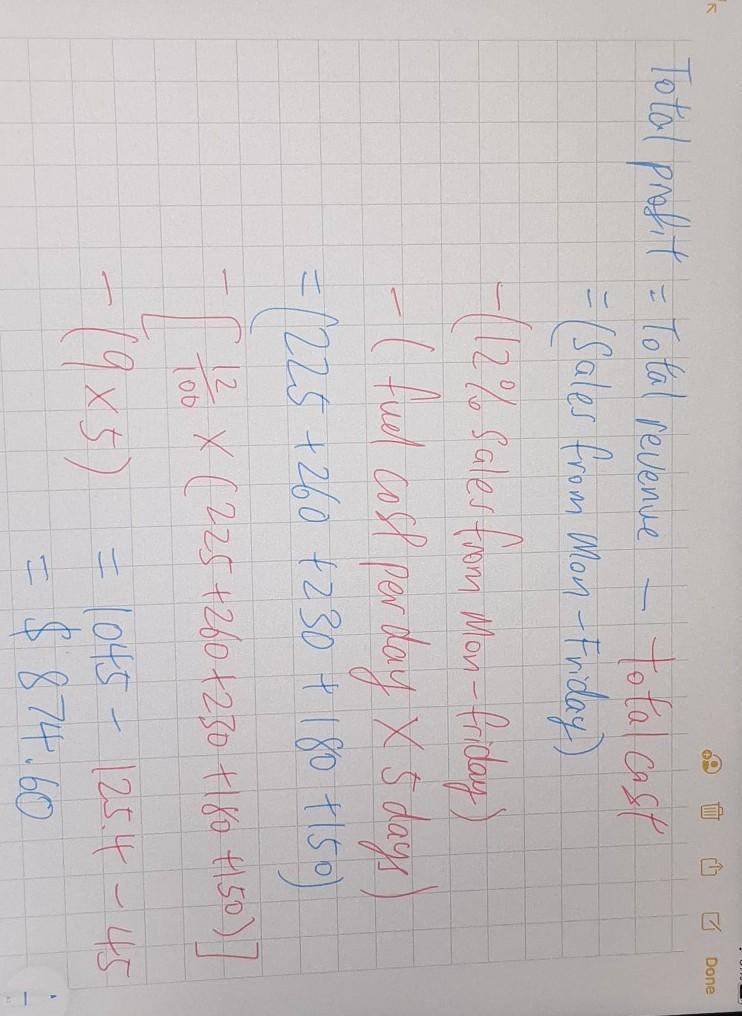 Done
Total profit = Total revenue - Total cost
= (Sales from Mon - Friday)
- (12% sales from Mon - friday)
- ( fuel cost per day × 5 days)
= (225 + 260 + 230 + 180 + 150)
- [12/100 × (225 + 260 + 230 + 180 + 150)]
- (9 × 5) = 1045 - 125.4 - 45
= $ 874.60